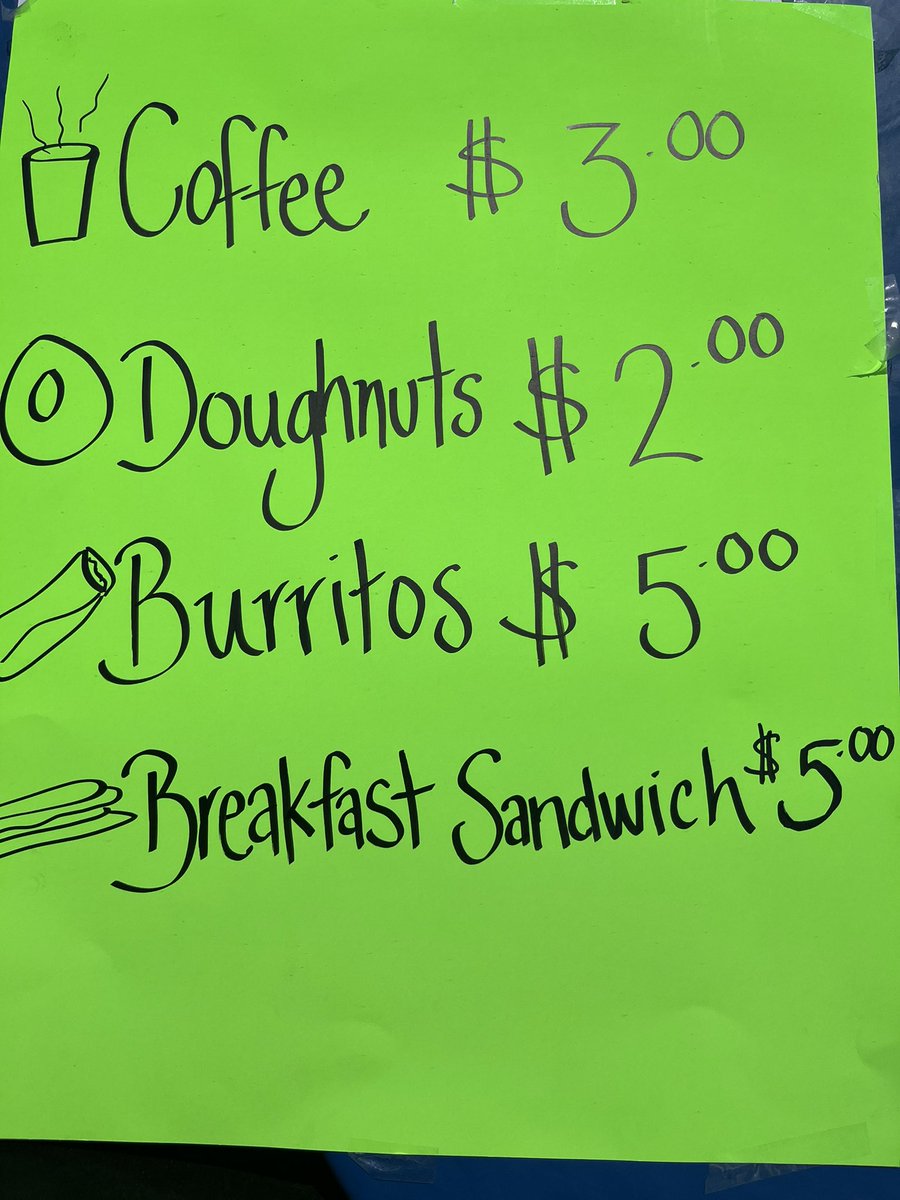 Coffee $ 3.00
Doughnuts $ 2.00
Burritos $ 5.00
Breakfast Sandwich $ 5.00